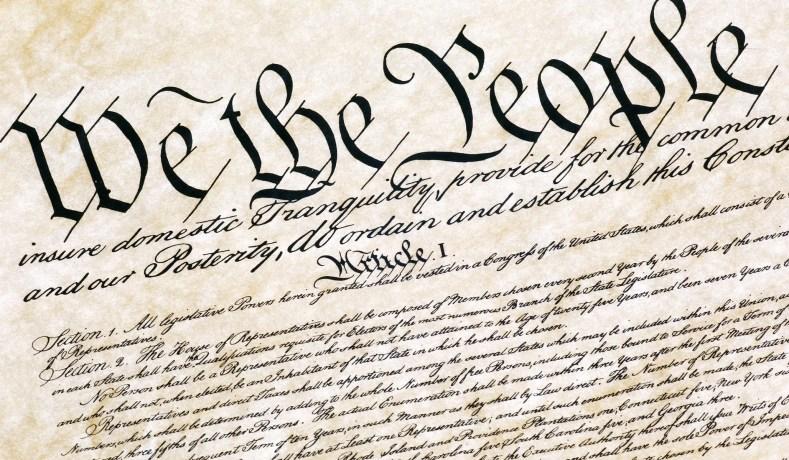 We the People
insure domestic Tranquility, provide for the common
and our Posterity, do ordain and establish this Const
Article. I.
Section. 1. All legislative Powers herein granted shall be vested in a Congress of the United States, which shall consist of a
of Representatives.
Section. 2. The House of Representatives shall be composed of Members chosen every second Year by the People of the several
in each State shall have the Qualifications requisite for Electors of the most numerous Branch of the State Legislature.
No Person shall be a Representative who shall not have attained to the Age of twenty five Years, and been seven Years a C
and who shall not, when elected, be an Inhabitant of that State in which he shall be chosen.
Representatives and direct Taxes shall be apportioned among the several States which may be included within this Union, ac
Numbers, which shall be determined by adding to the whole Number of free Persons, including those bound to Service for a Term of
three fifths of all other Persons. The actual Enumeration shall be made within three Years after the first Meeting of
sequent Term of ten Years, in such Manner as they shall by Law direct. The Number of Representative
have at Least one Representative; and until such enumeration shall be made, the State
Rhode Island and Providence Plantations one, Connecticut five, New York six
Carolina five, South Carolina five, and Georgia three.
the Executive Authority thereof shall issue Writs of
shall have the sole Power of Impea
chosen by the Legislat